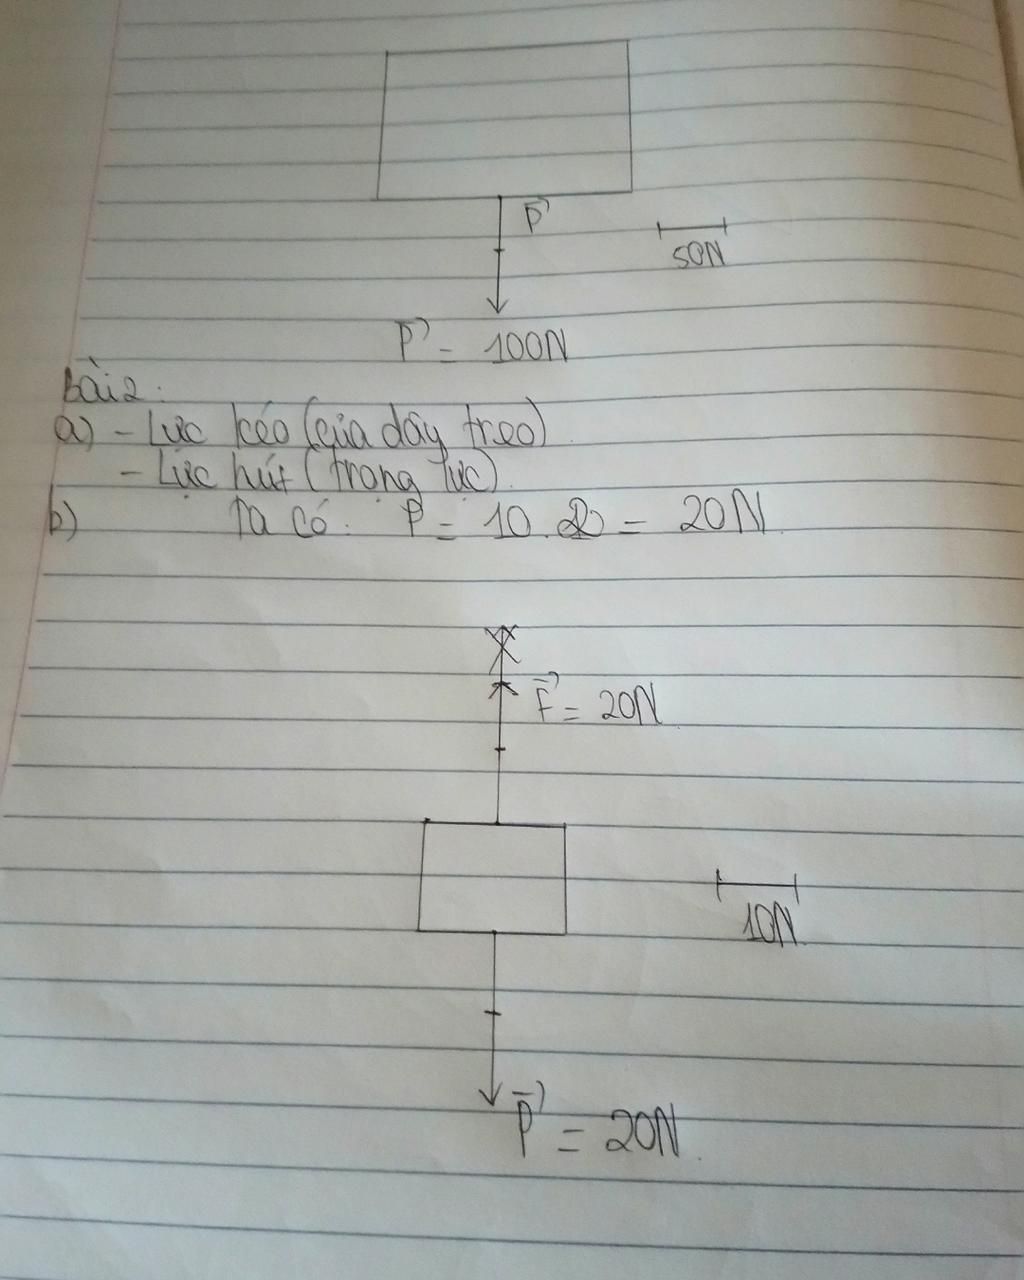 P⃗
50N
P⃗ = 100N
Bài 2:
a) - Lực kéo (của dây treo)
- Lực hút (trọng lực).
b) Ta có: P = 10. 2 = 20N
F⃗ = 20N
10N
P⃗ = 20N.